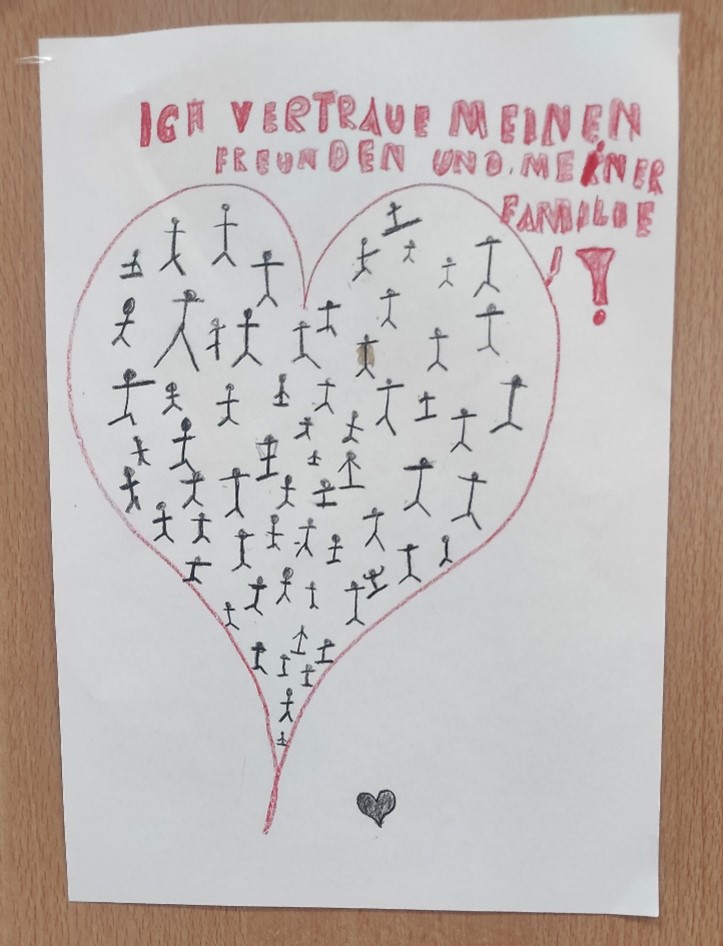 ICH VERTRAUE MEINEN
FREUNDEN UND MEINER
FAMILIE
!